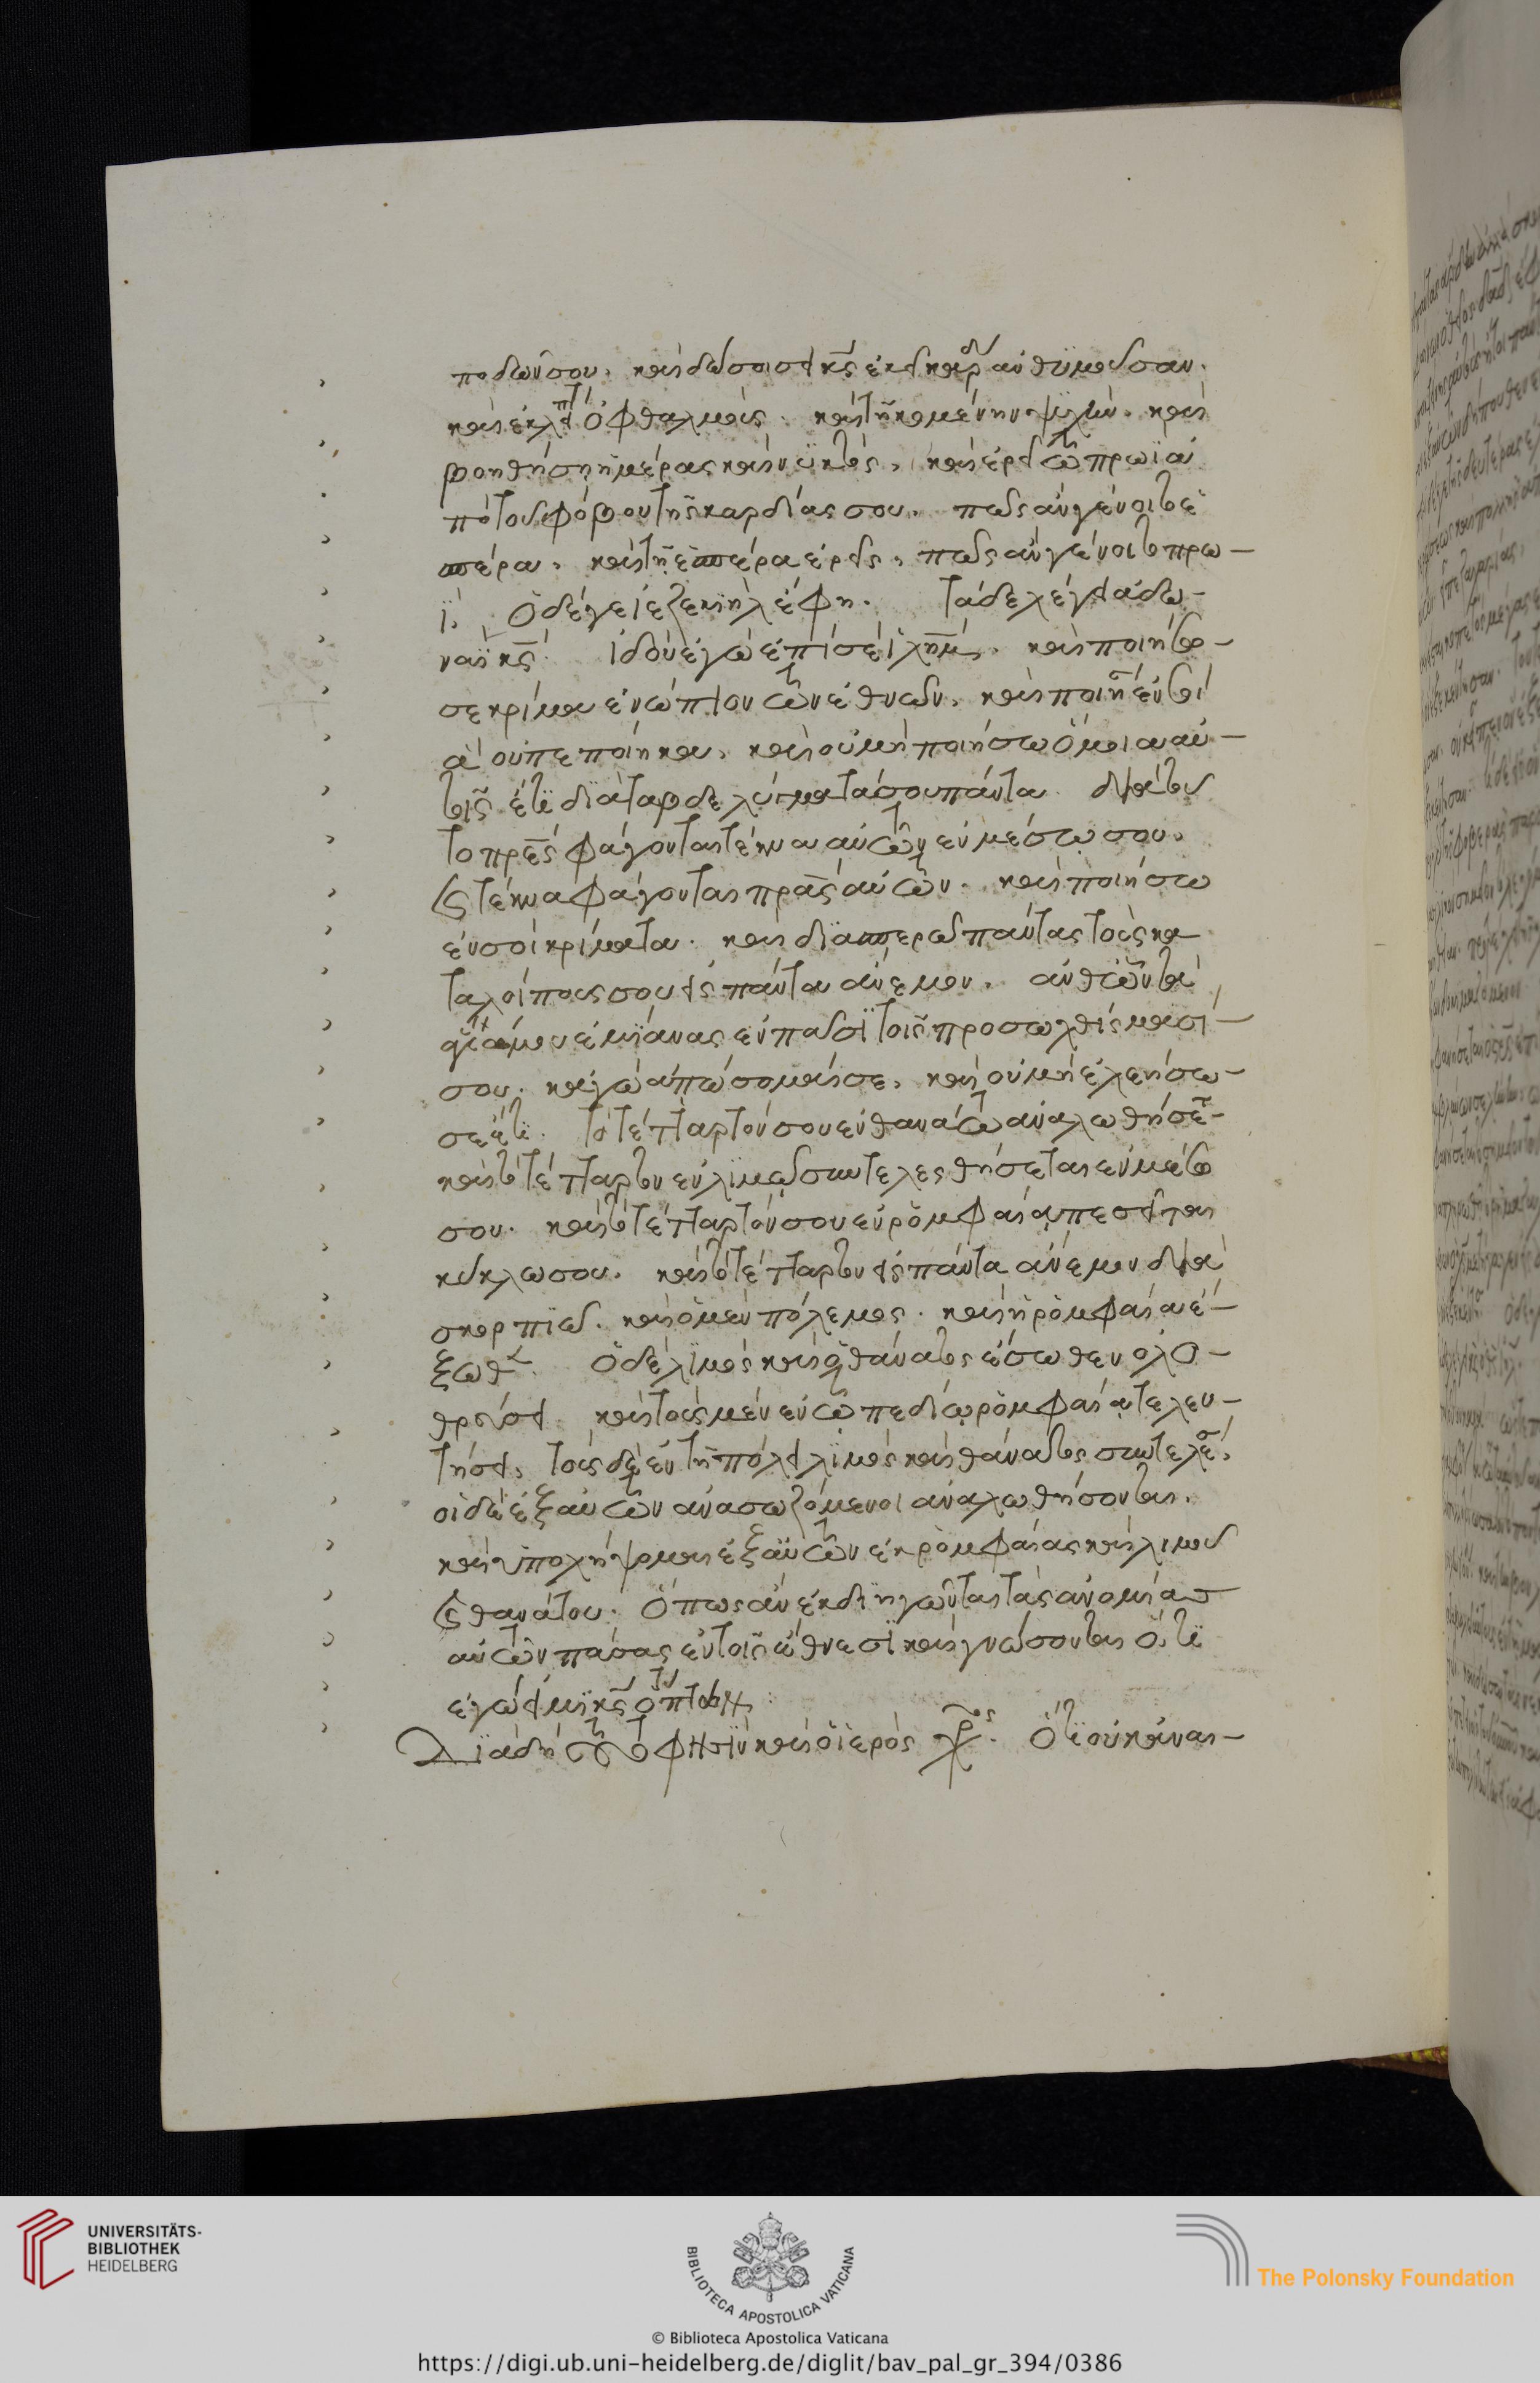 ποδῶν σου. καὶ δώσοι σοι κ̅ς̅ ἐκεῖ καρδ αν ἀθυμοῦσαν.
καὶ ἐκλειπτ ὀφθαλμοὺς. καὶ τηκομένην ψυχὴν. καὶ
φοβηθήση ἡμέρας καὶ νυκτὸς. καὶ ἐρεῖς τῶ πρωῒ ἀ
πὸ τοῦ φόβου τῆς καρδίας σου. πῶς ἂν γένοιτο ἑ
σπέρα. καὶ τῇ ἑσπέρα ἐρεῖς. πῶς ἂν γένοιτο πρω-
ΐ. Ὁ δέ γε ἰεζεκιὴλ ἔφη. τάδε λέγει ἀδω-
ναῒ κ̅ς̅. ἰδοὺ ἐγὼ ἐπὶ σὲ ἰλημ. καὶ ποιήσω
σε κρίμα ἐνώπιον τῶν ἐθνῶν. καὶ ποιήσω ἐν σοὶ
ἃ οὐ πεποίηκα. καὶ οὐ μὴ ποιήσω ὅμοια αὐ-
τοῖς ἔτι διὰ τὰ βδελύγματά σου πάντα διὰ τοῦ
το πρ̅ε̅ς φάγονται τέκνα αὐτῶν ἐν μέσω σου.
καὶ τέκνα φάγονται πρ̅α̅ς αὐτῶν. καὶ ποιήσω
ἐν σοὶ κρίματα. καὶ διασπερῶ πάντας τοὺς κα
ταλοίπους σου εἰς πάντα ἄνεμον. ἀνθῶν τὰ
ἅγιά μου ἐμίανας ἐν πᾶσι τοῖς προσωχθίσμασί
σου. καγὼ ἀπώσομαί σε. καὶ οὐ μὴ ἐλεήσω
σε ἔτι. τὸ τέταρτόν σου ἐν θανάτω ἀναλωθήσεται
καὶ τὸ τέταρτον ἐν λιμῷ συντελεσθήσεται ἐν μέσω
σου. καὶ τὸ τέταρτόν σου ἐν ῥομφαία πεσεῖται
κύκλω σου. καὶ τὸ τέταρτον εἰς πάντα ἄνεμον δια
σκορπιῶ. καὶ ὁ μὲν πόλεμος. καὶ ἡ ῥομφαία ἔ-
ξωθεν. Ὁ δὲ λιμὸς καὶ ὁ θάνατος ἔσωθεν ὀλο-
θρεύσει. καὶ τοὺς μὲν ἐν τῶ πεδίω ῥομφαία τελευ-
τήσει, τοὺς δὲ ἐν τῇ πόλει λιμὸς καὶ θάνατος συντελέσ.
οἱ δὲ ἐξ αὐτῶν ἀνασωζόμενοι ἀναλωθήσονται.
καὶ ὑπολήψομαι ἐξ αὐτῶν ἐκ ῥομφαίας καὶ λιμοῦ
καὶ θανάτου. ὅπως ἂν ἐκδιηγῶνται τὰς ἀνομίας
αὐτῶν πάσας ἐν τοῖς ἔθνεσι καὶ γνώσονται ὅτι
ἐγώ εἰμι κ̅ς̅
Διὰ δὴ τοῦτό φησιν καὶ ὁ ἱερὸς χρ̅ς. Ὅτι οὐκ ἔναι-
UNIVERSITÄTS-
BIBLIOTHEK
HEIDELBERG
BIBLIOTECA APOSTOLICA VATICANA
© Biblioteca Apostolica Vaticana
The Polonsky Foundation
https://digi.ub.uni-heidelberg.de/diglit/bav_pal_gr_394/0386